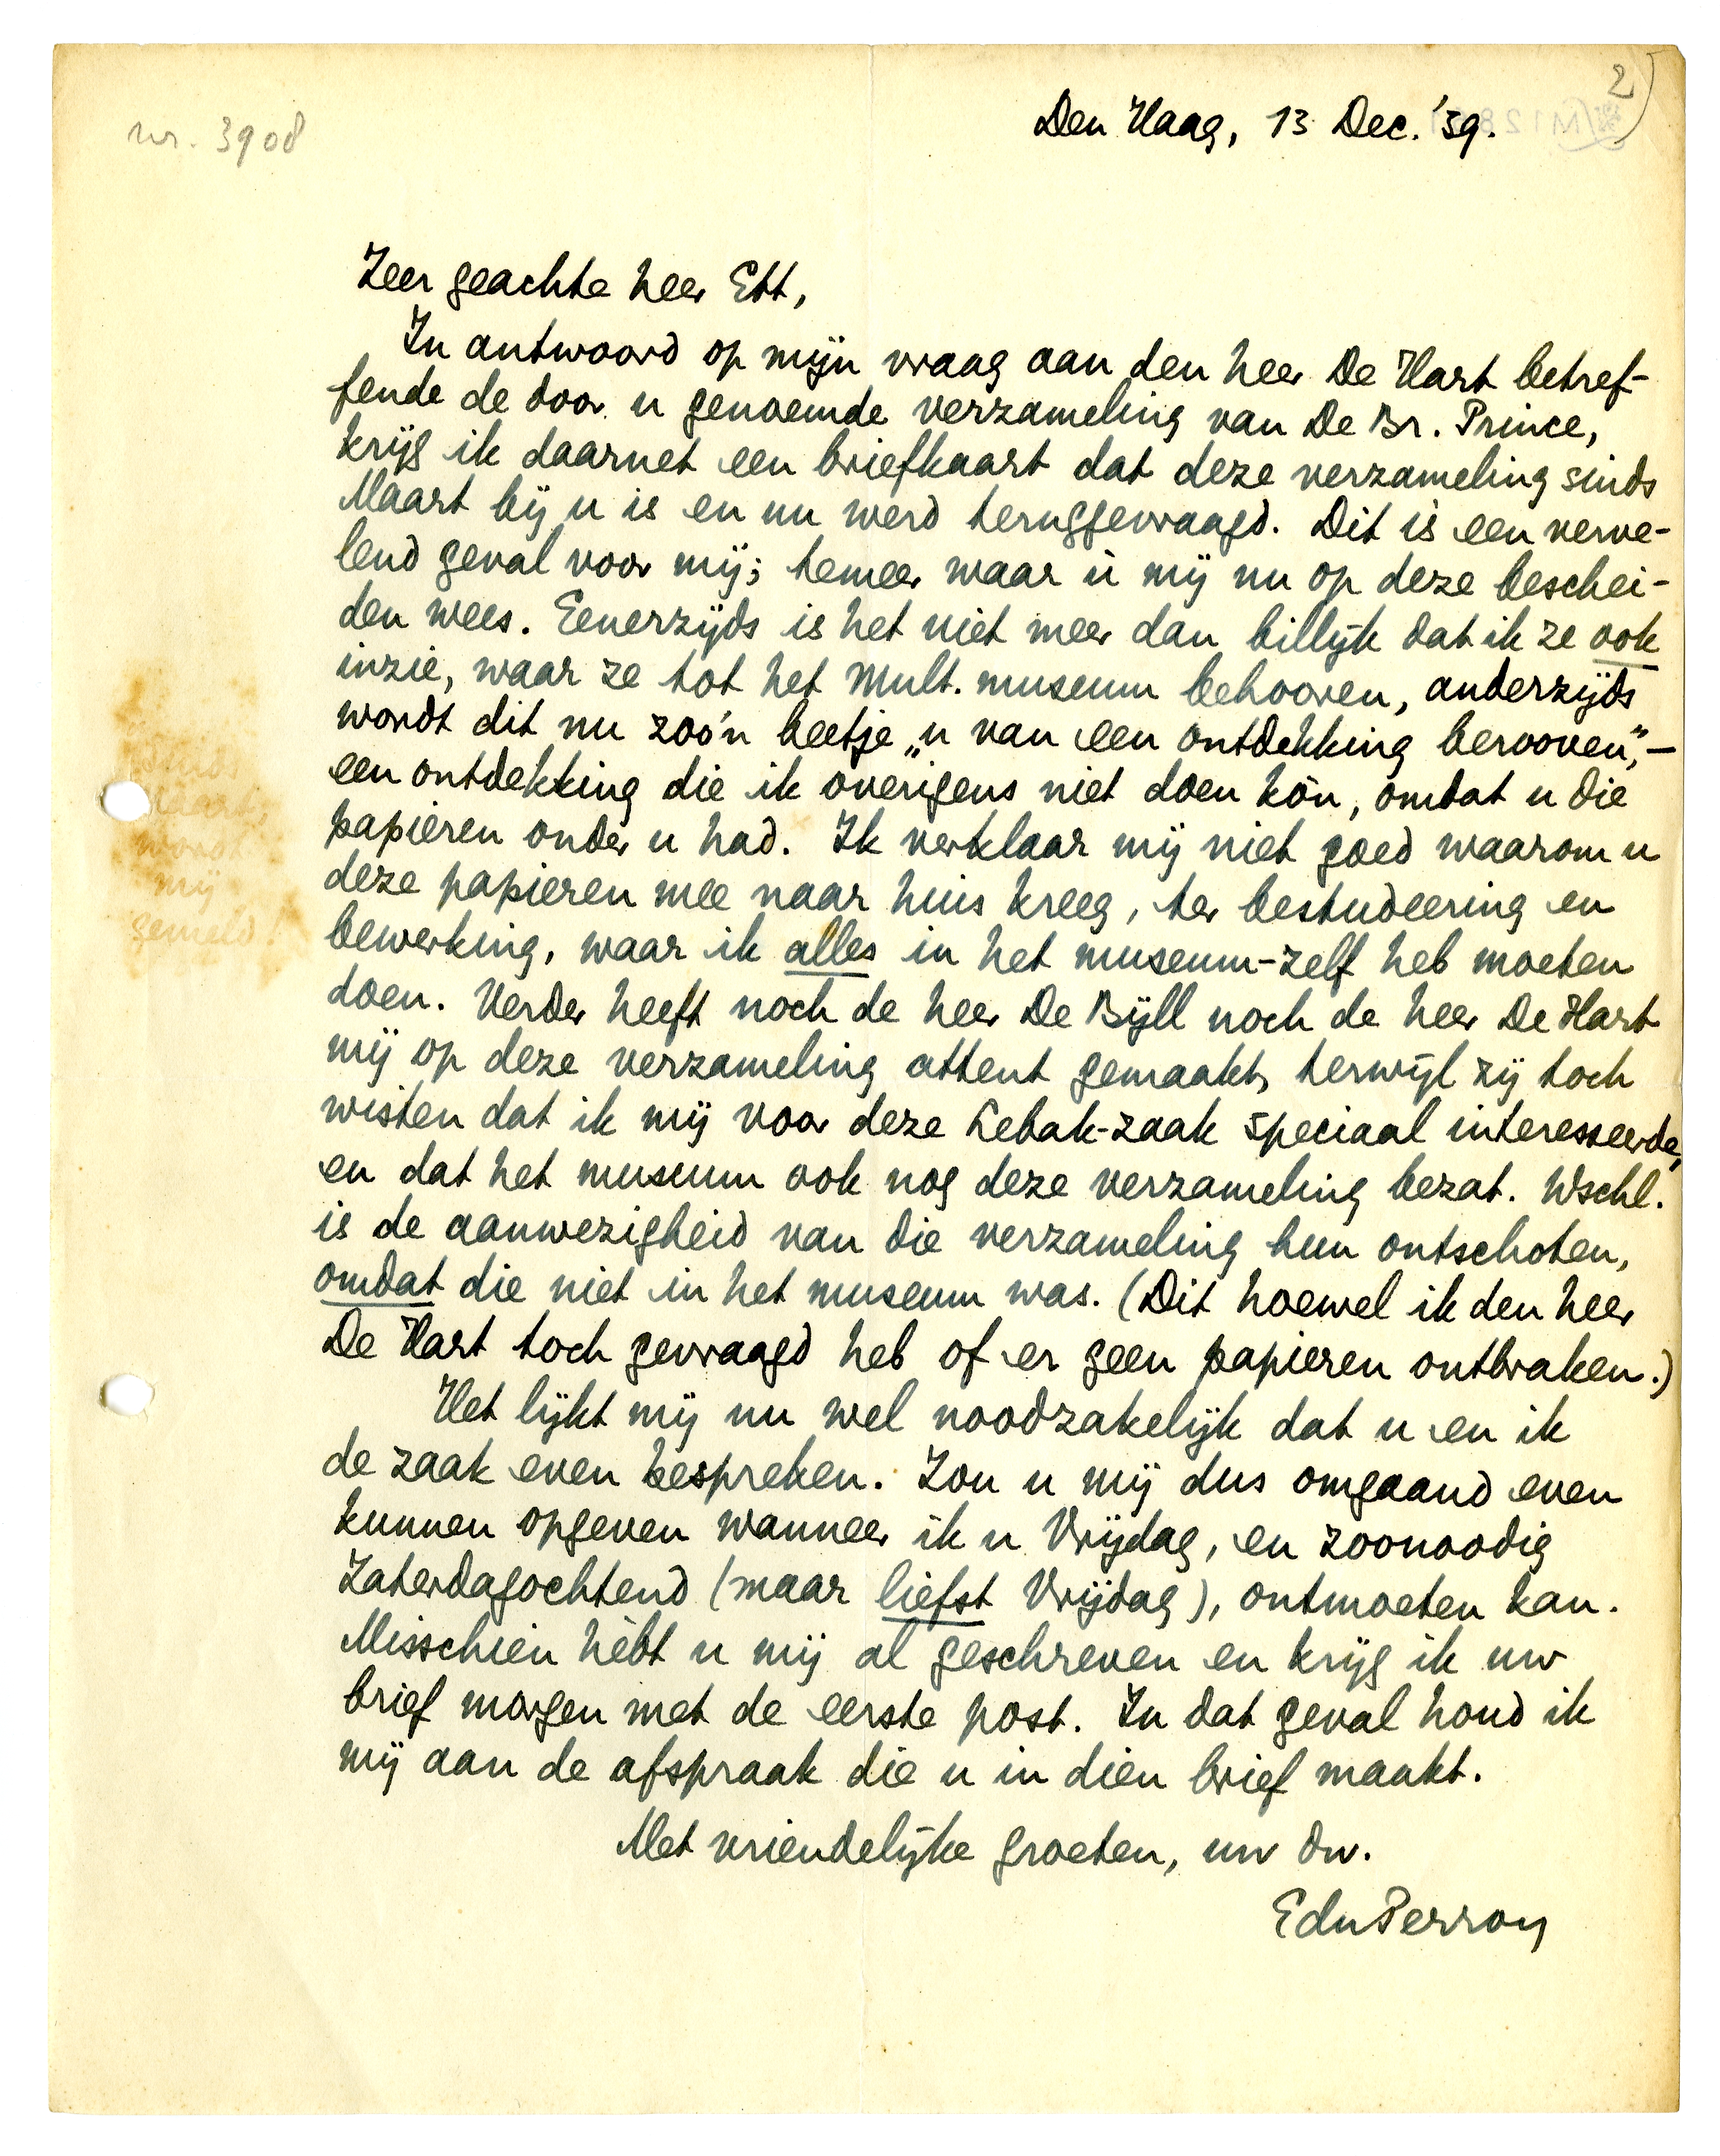 2)
nr. 3908
Den Haag, 13 Dec. '39.
Zeer geachte heer Ett,
In antwoord op mijn vraag aan den heer De Hart betref-
fende de door u genoemde verzameling van De Br. Prince,
krijg ik daarnet een briefkaart dat deze verzameling sinds
Maart bij u is en nu werd teruggevraagd. Dit is een verve-
lend geval voor mij; temeer waar ù mij nu op deze beschei-
den wees. Eenerzijds is het niet meer dan billijk dat ik ze ook
inzie, waar ze tot het Mult. museum behooren, anderzijds
wordt dit nu zoo'n beetje „u van een ontdekking berooven", —
een ontdekking die ik overigens niet doen kòn, omdat u die
papieren onder u had. Ik verklaar mij niet goed waarom u
deze papieren mee naar huis kreeg, ter bestudeering en
bewerking, waar ik alles in het museum-zelf heb moeten
doen. Verder heeft noch de heer De Bijll noch de heer De Hart
mij op deze verzameling attent gemaakt, terwijl zij toch
wisten dat ik mij voor deze Lebak-zaak speciaal interesseerde,
en dat het museum ook nog deze verzameling bezat. Wschl.
is de aanwezigheid van die verzameling hun ontschoten,
omdat die niet in het museum was. (Dit hoewel ik den heer
De Hart toch gevraagd heb of er geen papieren ontbraken.)
Het lijkt mij nu wel noodzakelijk dat u en ik
de zaak even bespreken. Zou u mij dus omgaand even
kunnen opgeven wanneer ik u Vrijdag, en zoonoodig
Zaterdagochtend (maar liefst Vrijdag), ontmoeten kan.
Misschien hèbt u mij al geschreven en krijg ik uw
brief morgen met de eerste post. In dat geval houd ik
mij aan de afspraak die u in dien brief maakt.
Met vriendelijke groeten, uw dw.
EduPerron
sinds
Maart,
wordt
mij
gemeld!